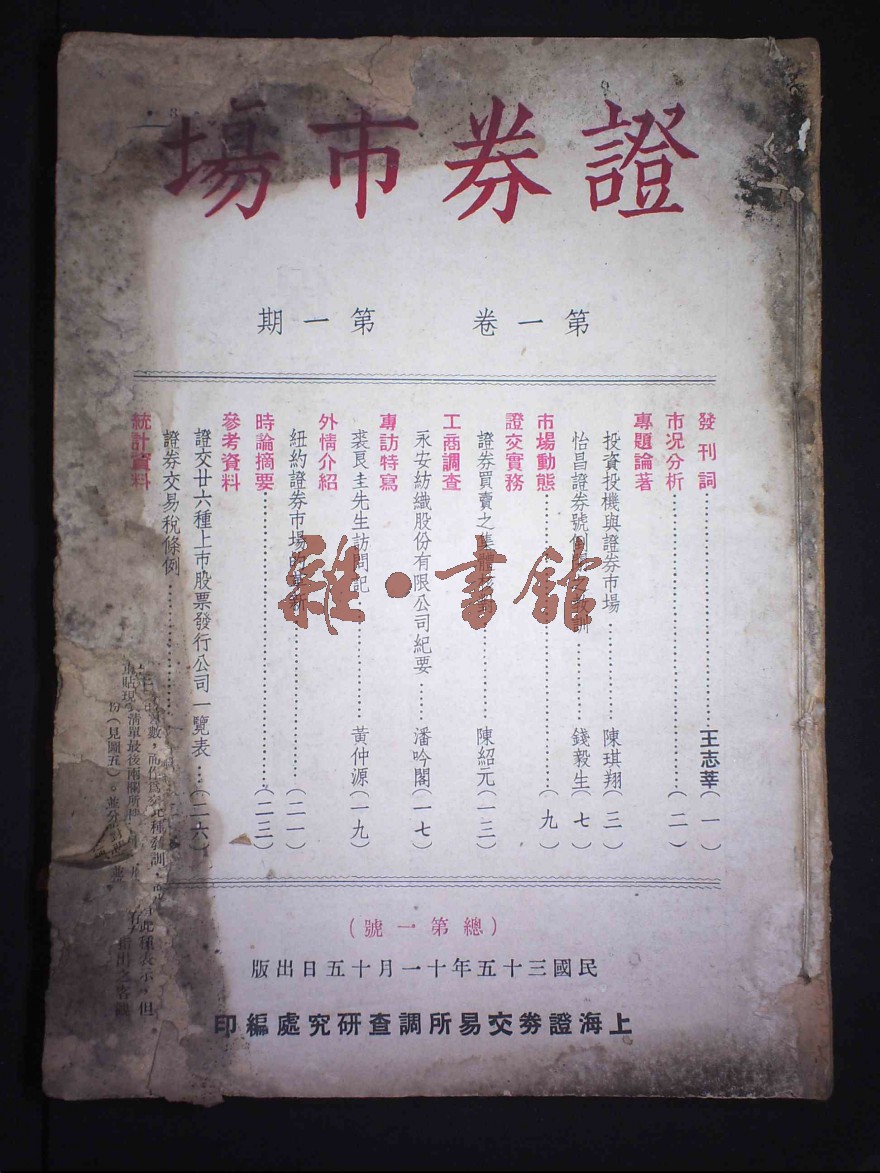 證券市場
第一卷 第一期
發刊詞……王志莘(一)
市況分析……(二)
專題論著
投資投機與證券市場……陳琪翔(三)
怡昌證券號倒 訓……錢毅生(七)
市場動態……(九)
證交實務
證券買賣之集 ……陳紹元(一三)
工商調查
永安紡織股份有限公司紀要……潘吟閣(一七)
專訪特寫
裘良圭先生訪問記……黃仲源(一九)
外情介紹
紐約證券市場的 新……(二一)
時論摘要……(二三)
參考資料
證交廿六種上市股票發行公司一覽表…(二六)
證券交易稅條例……
統計資料
(總第一號)
民國三十五年十一月十五日出版
上海證券交易所調查研究處編印
數,而作為 種教訓, 此種表示,但
清單最後兩欄所 指出之客觀
份(見圖五)。並分
雜·書館